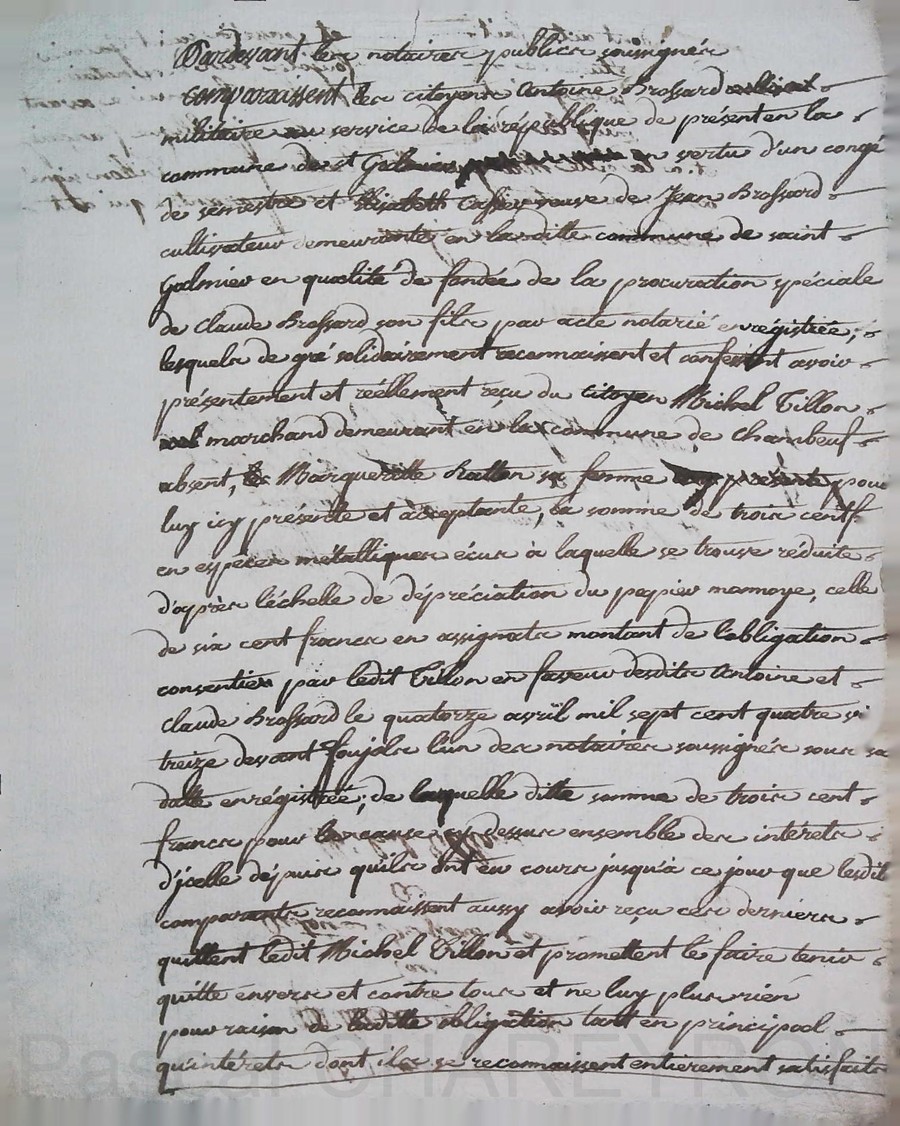 Pardevant les notaires publics soussignés
comparaissent les citoyens Antoine Brossard
militaire au service de la république de présent en la
commune de st Galmier en vertu d'un congé
de semestre et Elisabeth veuve de Jean Brossard
cultivateur demeurante en la ditte commune de saint
Galmier en qualité de fondée de la procuration spéciale
de Claude Brossard son fils par acte notarié enrégistrée,
lesquels de gré solidairement reconnaissent et confessent avoir
présentement et réellement reçu du citoyen Michel Tillon
marchand demeurant en la commune de Chambeuf
absent, Margueritte Rallon sa femme pour
luy icy présente et acceptante, la somme de trois cents
en espèces métalliques écus à laquelle se trouve réduite
d'après l'échelle de dépréciation du papier monnoye, celle
de six cent francs en assignats montant de l'obligation
consentie par ledit Tillon en faveur desdits Antoine et
Claude Brossard le quatorze avril mil sept cent quatre vi
treize devant Poujols l'un des notaires soussignés sous sa
datte enrégistrée; de laquelle ditte somme de trois cent
francs pour les causes cy dessus ensemble des intérets
d'jcelle depuis quils ont en cours jusqu'à ce jour que lesdit
comparants reconnaissent aussy avoir reçu ces derniers
quittent ledit Michel Tillon et promettent le faire tenir
quitte envers et contre tous et ne luy plus rien
pour raison de laditte obligation tant en principal
qu'intérets dont ils se reconnaissent entierement satisfaits
Pascal CHAREYRON